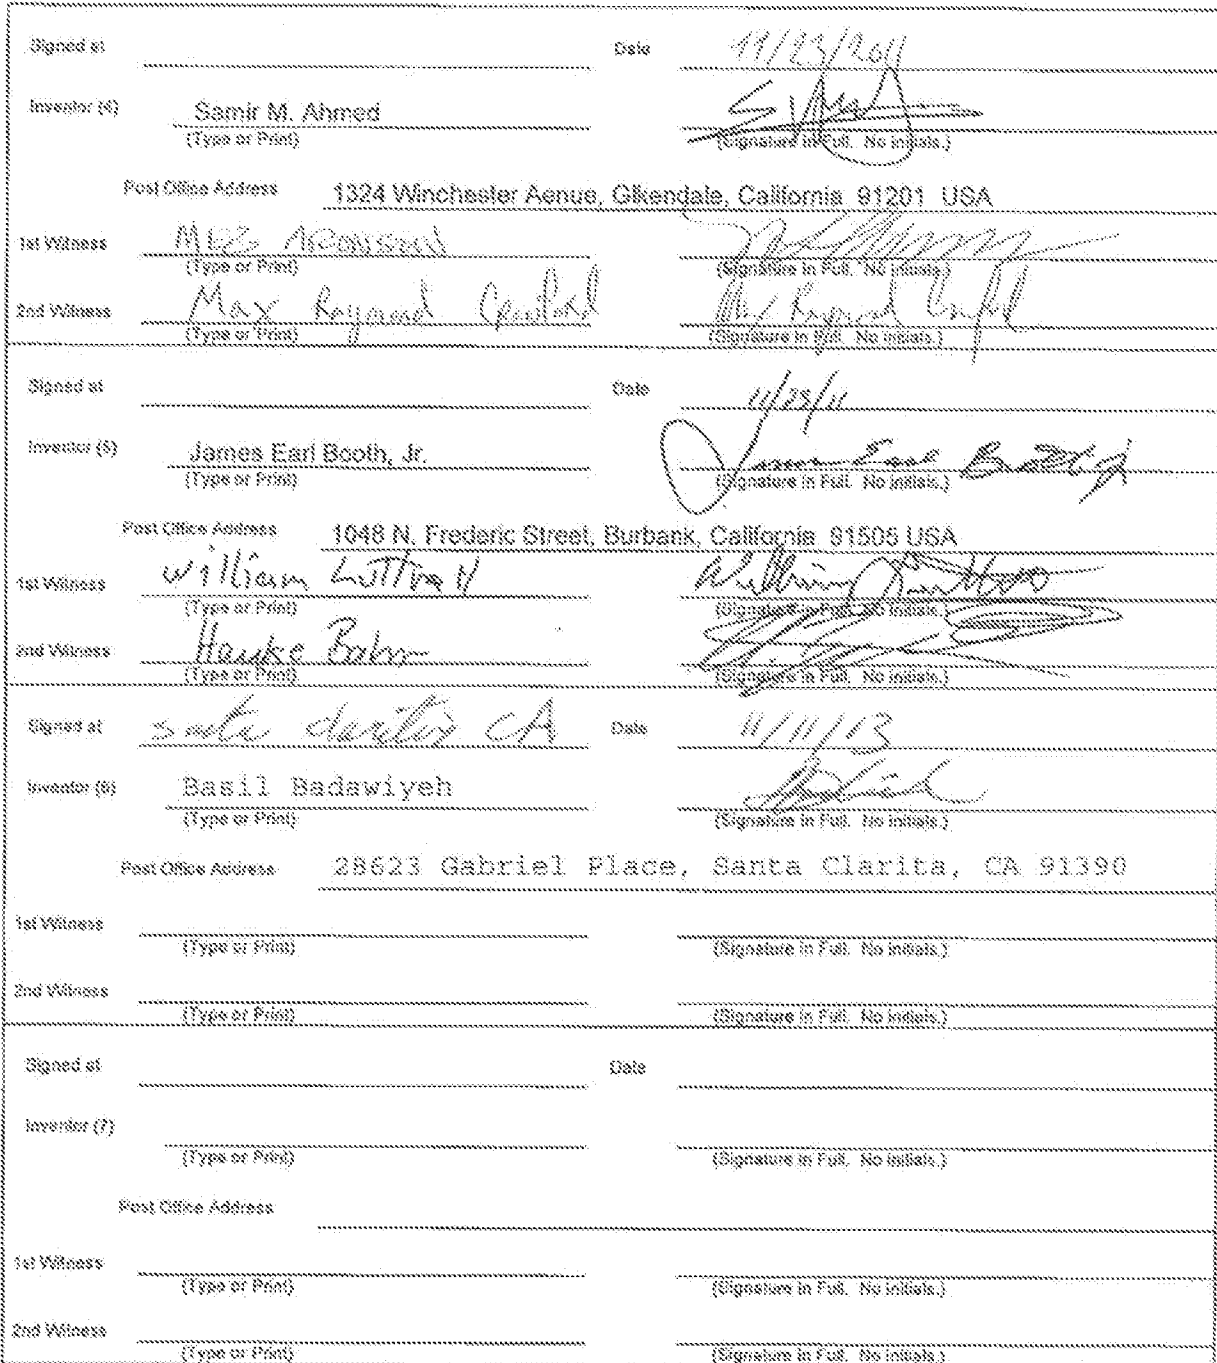 Signed at Date 11/23/2011
Inventor (4) Samir M. Ahmed
(Type or Print) (Signature in Full. No initials.)
Post Office Address 1324 Winchester Aenue, Glkendale, California 91201 USA
1st Witness
(Type or Print) (Signature in Full. No initials.)
2nd Witness Max
(Type or Print) (Signature in Full. No initials.)
Signed at Date
Inventor (5) James Earl Booth, Jr.
(Type or Print) (Signature in Full. No initials.)
Post Office Address 1048 N. Frederic Street, Burbank, California 91505 USA
1st Witness William
(Type or Print) (Signature in Full. No initials.)
2nd Witness Hauke
(Type or Print) (Signature in Full. No initials.)
Signed at CA Date 11/11/13
Inventor (6) Basil Badawiyeh
(Type or Print) (Signature in Full. No initials.)
Post Office Address 28623 Gabriel Place, Santa Clarita, CA 91390
1st Witness
(Type or Print) (Signature in Full. No initials.)
2nd Witness
(Type or Print) (Signature in Full. No initials.)
Signed at Date
Inventor (7)
(Type or Print) (Signature in Full. No initials.)
Post Office Address
1st Witness
(Type or Print) (Signature in Full. No initials.)
2nd Witness
(Type or Print) (Signature in Full. No initials.)